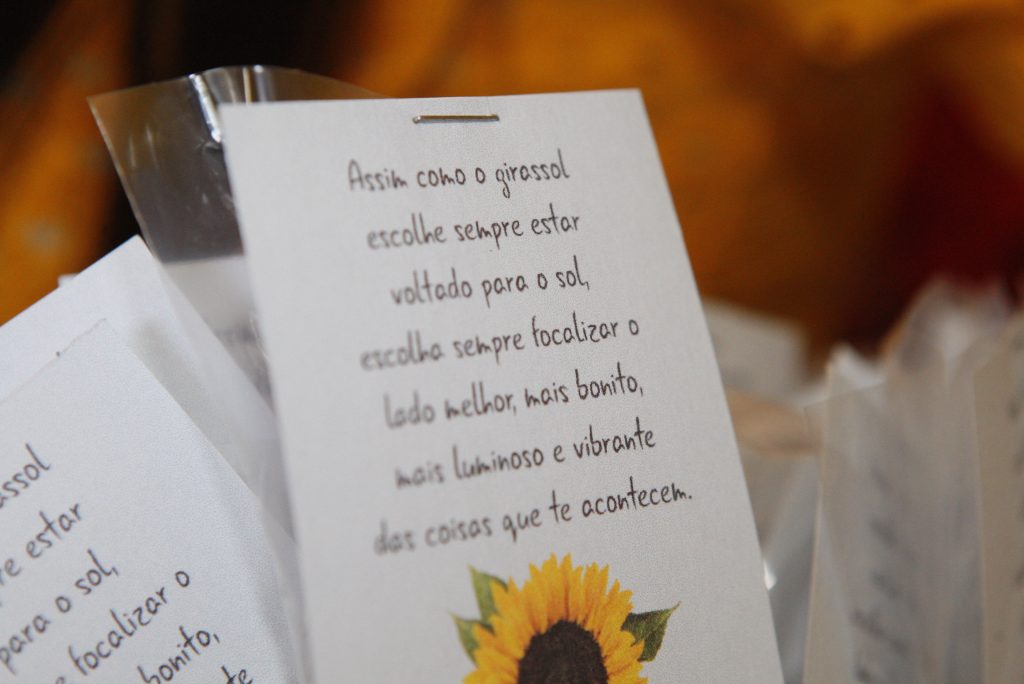 Assim como o girassol
escolhe sempre estar
voltado para o sol,
escolha sempre focalizar o
lado melhor, mais bonito,
mais luminoso e vibrante
das coisas que te acontecem.
estar
para o sol,
focalizar o
bonito,